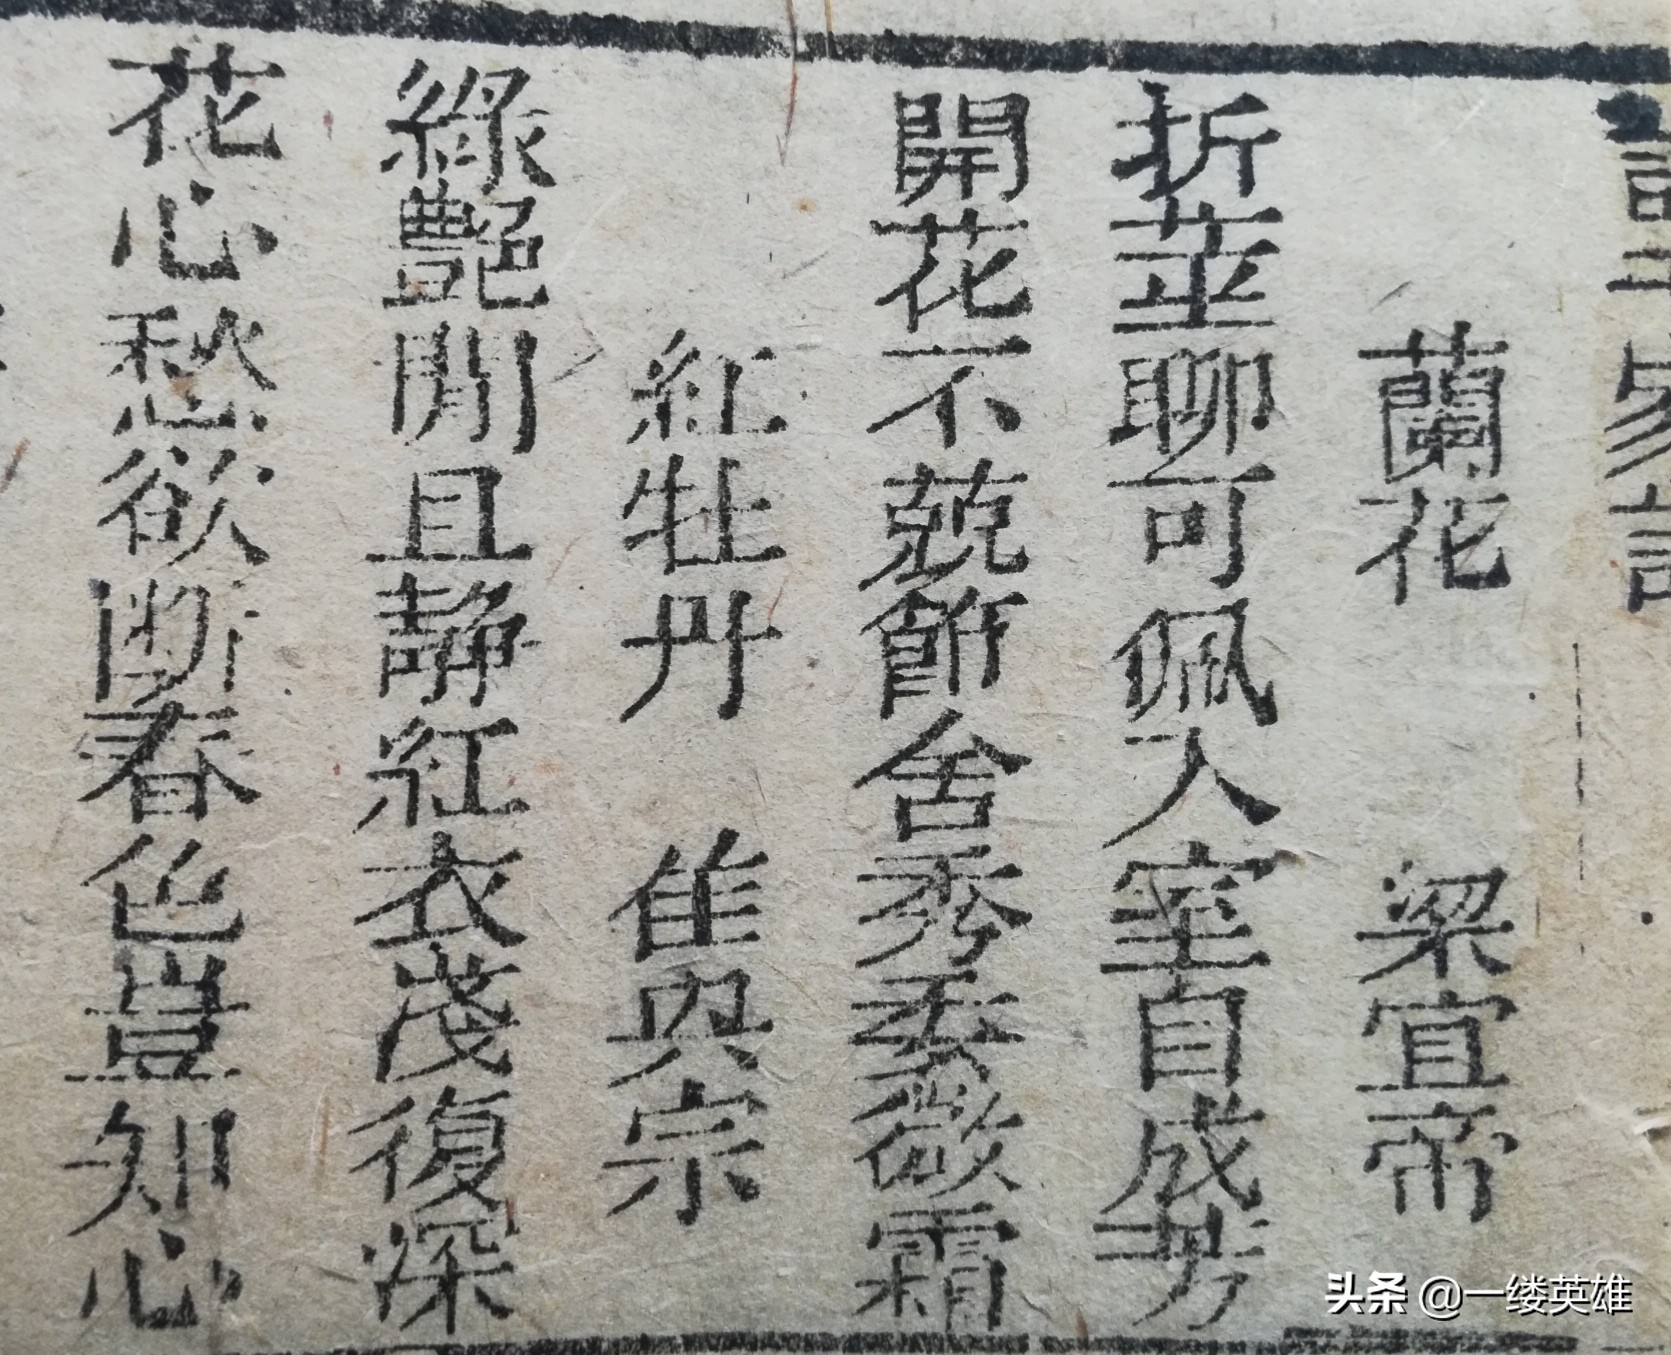 蘭花 梁宜帝
折莖聊可佩入室自成芳
開花不競飾舍秀委微霜
紅牡丹 隹興宗
綠艷閒且靜紅衣淺復深
花心愁欲断春色豈知心
头条 @一缕英雄